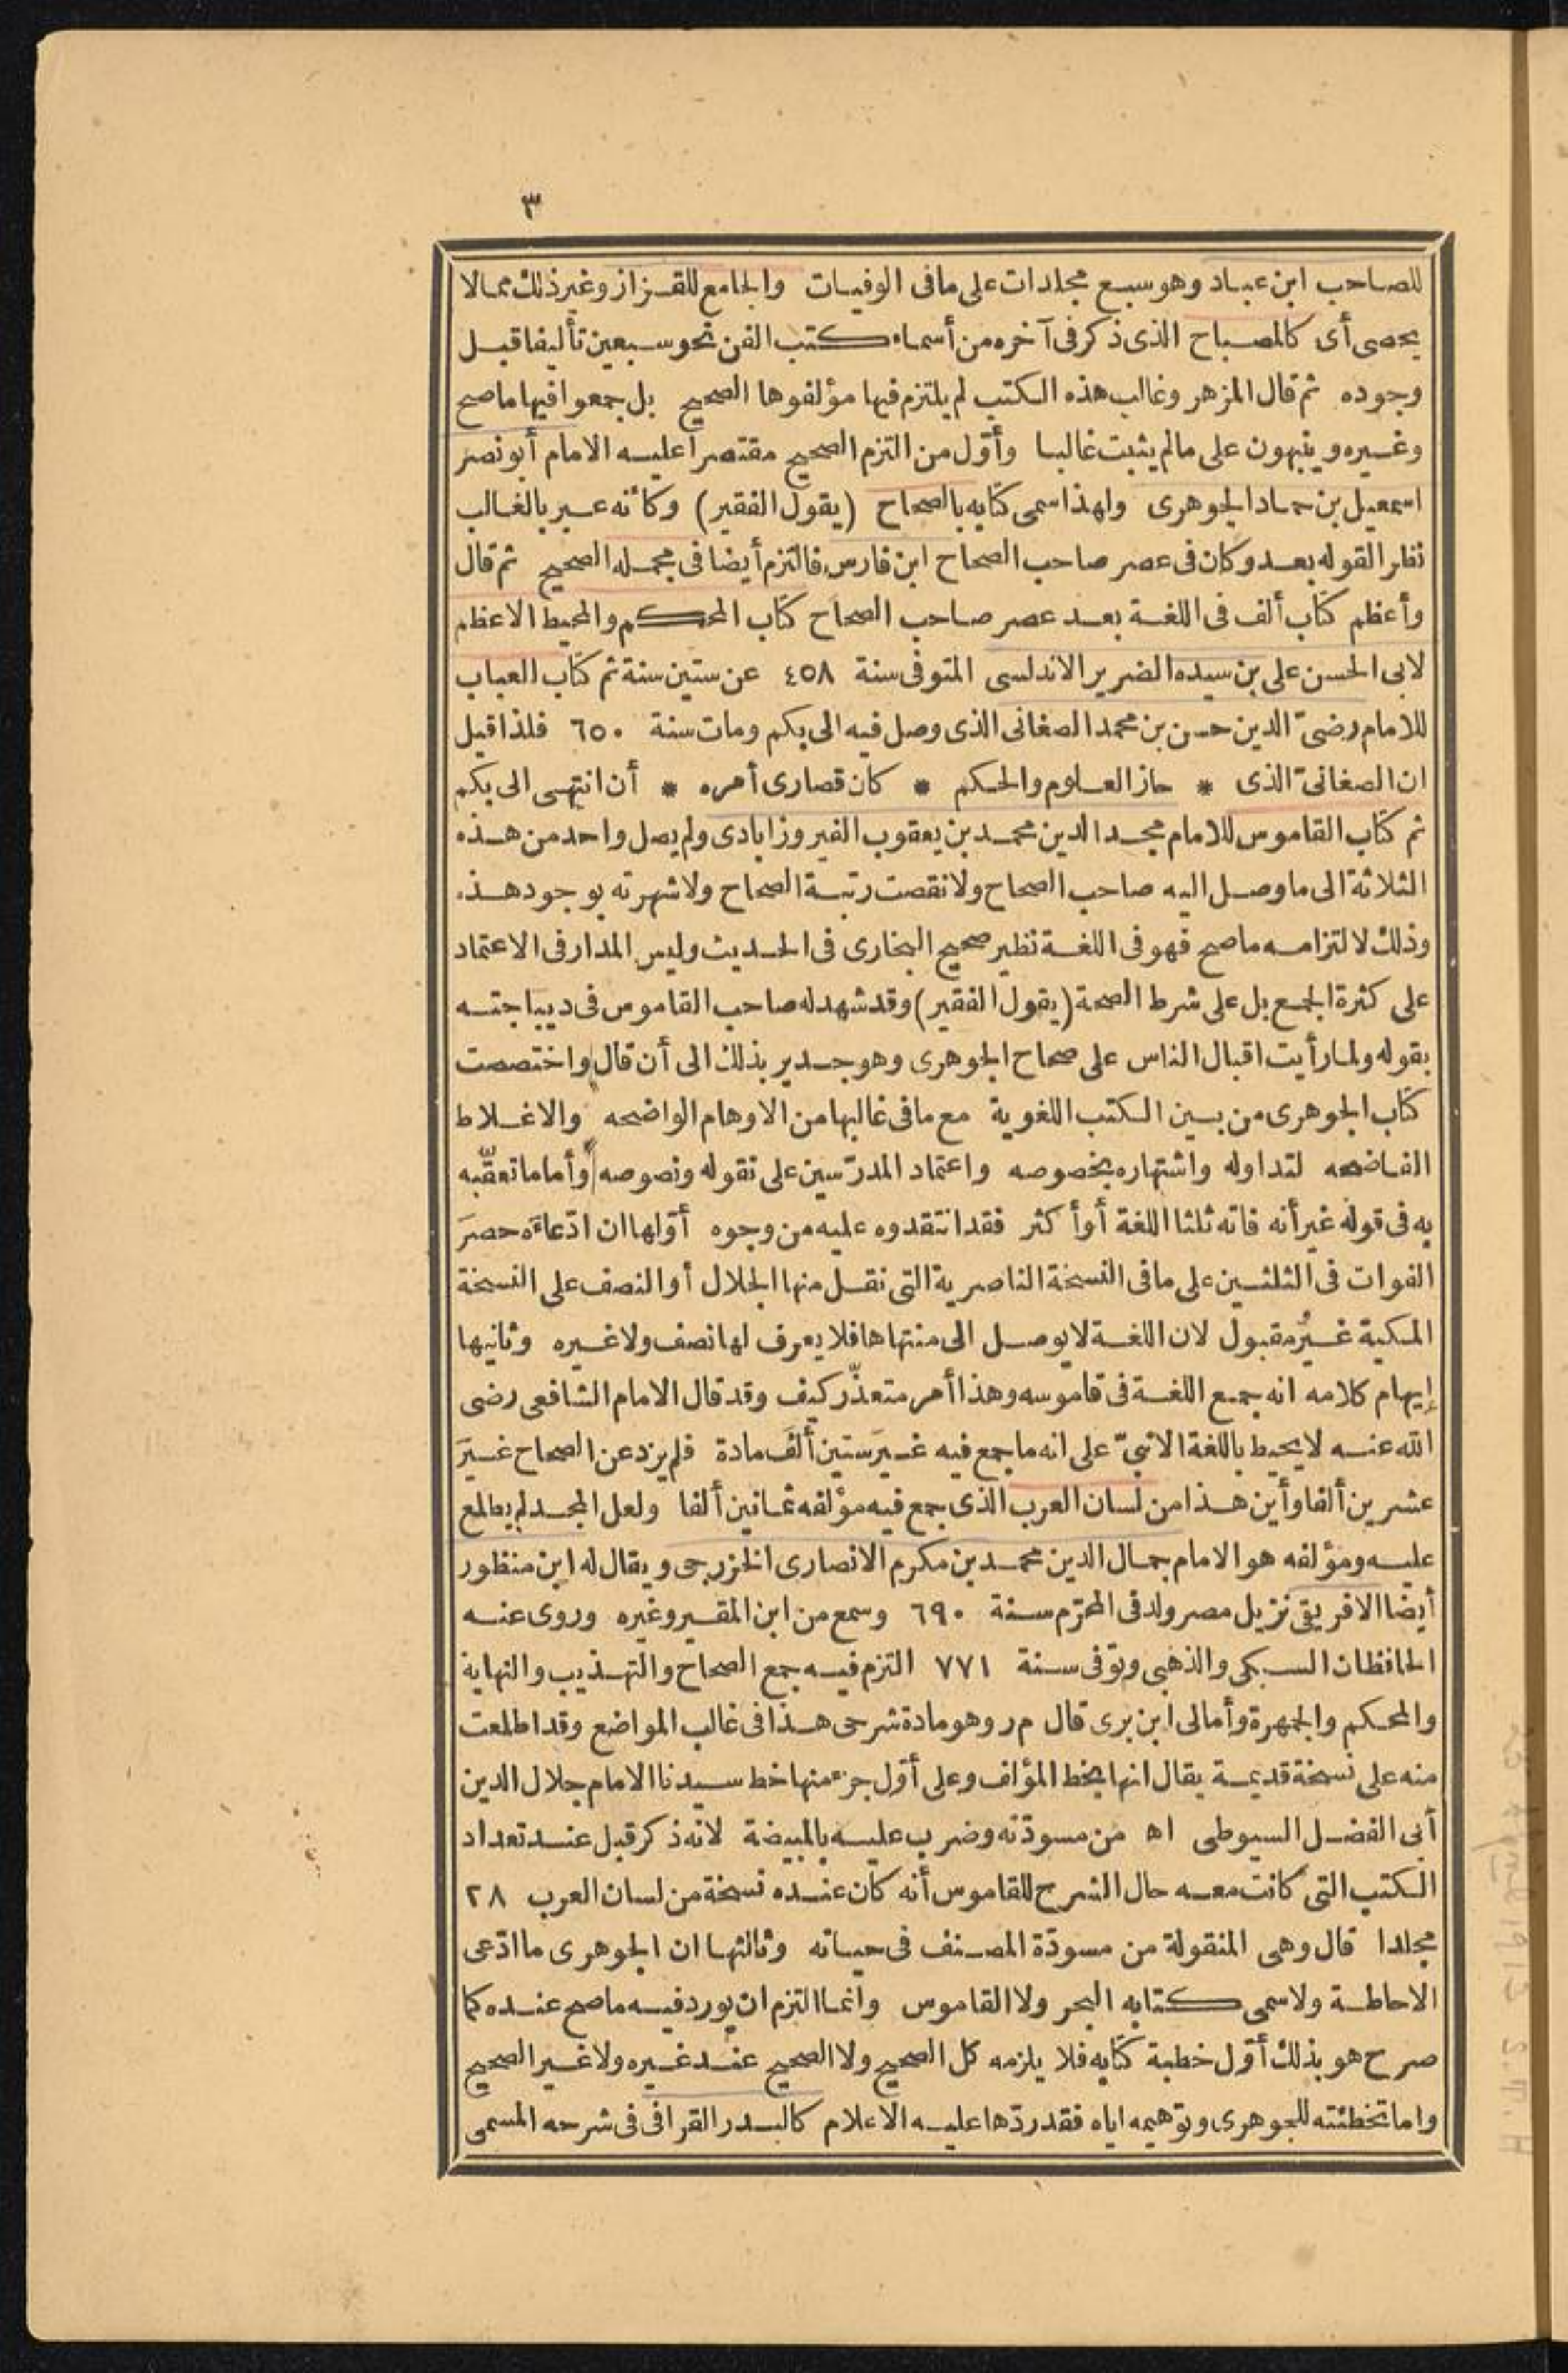 ٣
للصاحب ابن عباد وهو سبع مجلدات على ما فى الوفيات والجامع للقزاز وغير ذلك مما لا
يحصى أى كالمصباح الذى ذكر فى آخره من أسماء كتب الفن نحو سبعين تأليفا قبل
وجوده ثم قال المزهر وغالب هذه الكتب لم يلتزم فيها مؤلفوها الصحيح بل جمعوا فيها ما صح
وغيره وينبهون على ما لم يثبت غالبا وأوّل من التزم الصحيح مقتصرا عليه الامام أبو نصر
اسمعيل بن حماد الجوهرى ولهذا سمى كتابه بالصحاح (يقول الفقير) وكأنه عبر بالغالب
نظرا لقوله بعد وكان فى عصر صاحب الصحاح ابن فارس فالتزم أيضا فى مجمله الصحيح ثم قال
وأعظم كتاب ألف فى اللغة بعد عصر صاحب الصحاح كتاب المحكم والمحيط الاعظم
لابى الحسن على بن سيده الضرير الاندلسى المتوفى سنة ٤٥٨ عن ستين سنة ثم كتاب العباب
للامام رضىّ الدين حسن بن محمد الصغانى الذى وصل فيه الى بكم ومات سنة ٦٥٠ فلذا قيل
ان الصغانىّ الذى * حاز العلوم والحكم * كان قصارى أمره * أن انتهى الى بكم
ثم كتاب القاموس للامام مجد الدين محمد بن يعقوب الفيروزابادى ولم يصل واحد من هذه
الثلاثة الى ما وصل اليه صاحب الصحاح ولا نقصت رتبة الصحاح ولا شهرته بوجود هذه
وذلك لالتزامه ما صح فهو فى اللغة نظير صحيح البخارى فى الحديث وليس المدار فى الاعتماد
على كثرة الجمع بل على شرط الصحة (يقول الفقير) وقد شهد له صاحب القاموس فى ديباجته
بقوله ولما رأيت اقبال الناس على صحاح الجوهرى وهو جدير بذلك الى أن قال واختصصت
كتاب الجوهرى من بين الكتب اللغوية مع ما فى غالبها من الاوهام الواضحه والاغلاط
الفاضحه لتداوله واشتهاره بخصوصه واعتماد المدرّسين على نقوله ونصوصه وأما ما تعقّبه
به فى قوله غير أنه فاته ثلثا اللغة أو أكثر فقد انتقدوه عليه من وجوه أوّلها ان ادّعاءَه حصرَ
الفوات فى الثلثين على ما فى النسخة الناصرية التى نقل منها الجلال أو النصف على النسخة
المكية غيرُ مقبول لان اللغة لا يوصل الى منتهاها فلا يعرف لها نصف ولا غيره وثانيها
إيهام كلامه انه جمع اللغة فى قاموسه وهذا أمر متعذّر كيف وقد قال الامام الشافعى رضى
الله عنه لا يحيط باللغة الا نبىّ على انه ما جمع فيه غيرَ ستين ألفَ مادة فلم يزد عن الصحاح غيرَ
عشرين ألفا وأين هذا من لسان العرب الذى جمع فيه مؤلفه ثمانين ألفا ولعل المجد لم يطلع
عليه ومؤلفه هو الامام جمال الدين محمد بن مكرم الانصارى الخزرجى ويقال له ابن منظور
أيضا الافريقى نزيل مصر ولد فى المحرّم سنة ٦٩٠ وسمع من ابن المقير وغيره وروى عنه
الحافظان السبكى والذهبى وتوفى سنة ٧٧١ التزم فيه جمع الصحاح والتهذيب والنهاية
والمحكم والجمهرة وأمالى ابن برى قال م ر وهو مادة شرحى هذا فى غالب المواضع وقد اطلعت
منه على نسخة قديمة يقال انها بخط المؤلف وعلى أوّل جزء منها خط سيدنا الامام جلال الدين
أبى الفضل السيوطى اه من مسودّته وضرب عليه بالمبيضة لانه ذكر قبل عند تعداد
الكتب التى كانت معه حال الشرح للقاموس أنه كان عنده نسخة من لسان العرب ٢٨
مجلدا قال وهى المنقولة من مسودّة المصنف فى حياته وثالثها ان الجوهرى ما ادّعى
الاحاطة ولا سمى كتابه البحر ولا القاموس وانما التزم ان يورد فيه ما صح عنده كما
صرح هو بذلك أوّل خطبة كتابه فلا يلزمه كل الصحيح ولا الصحيح عند غيره ولا غير الصحيح
واما تخطئته للجوهرى وتوهيمه اياه فقد ردّها عليه الاعلام كالبدر القرافى فى شرحه المسمى